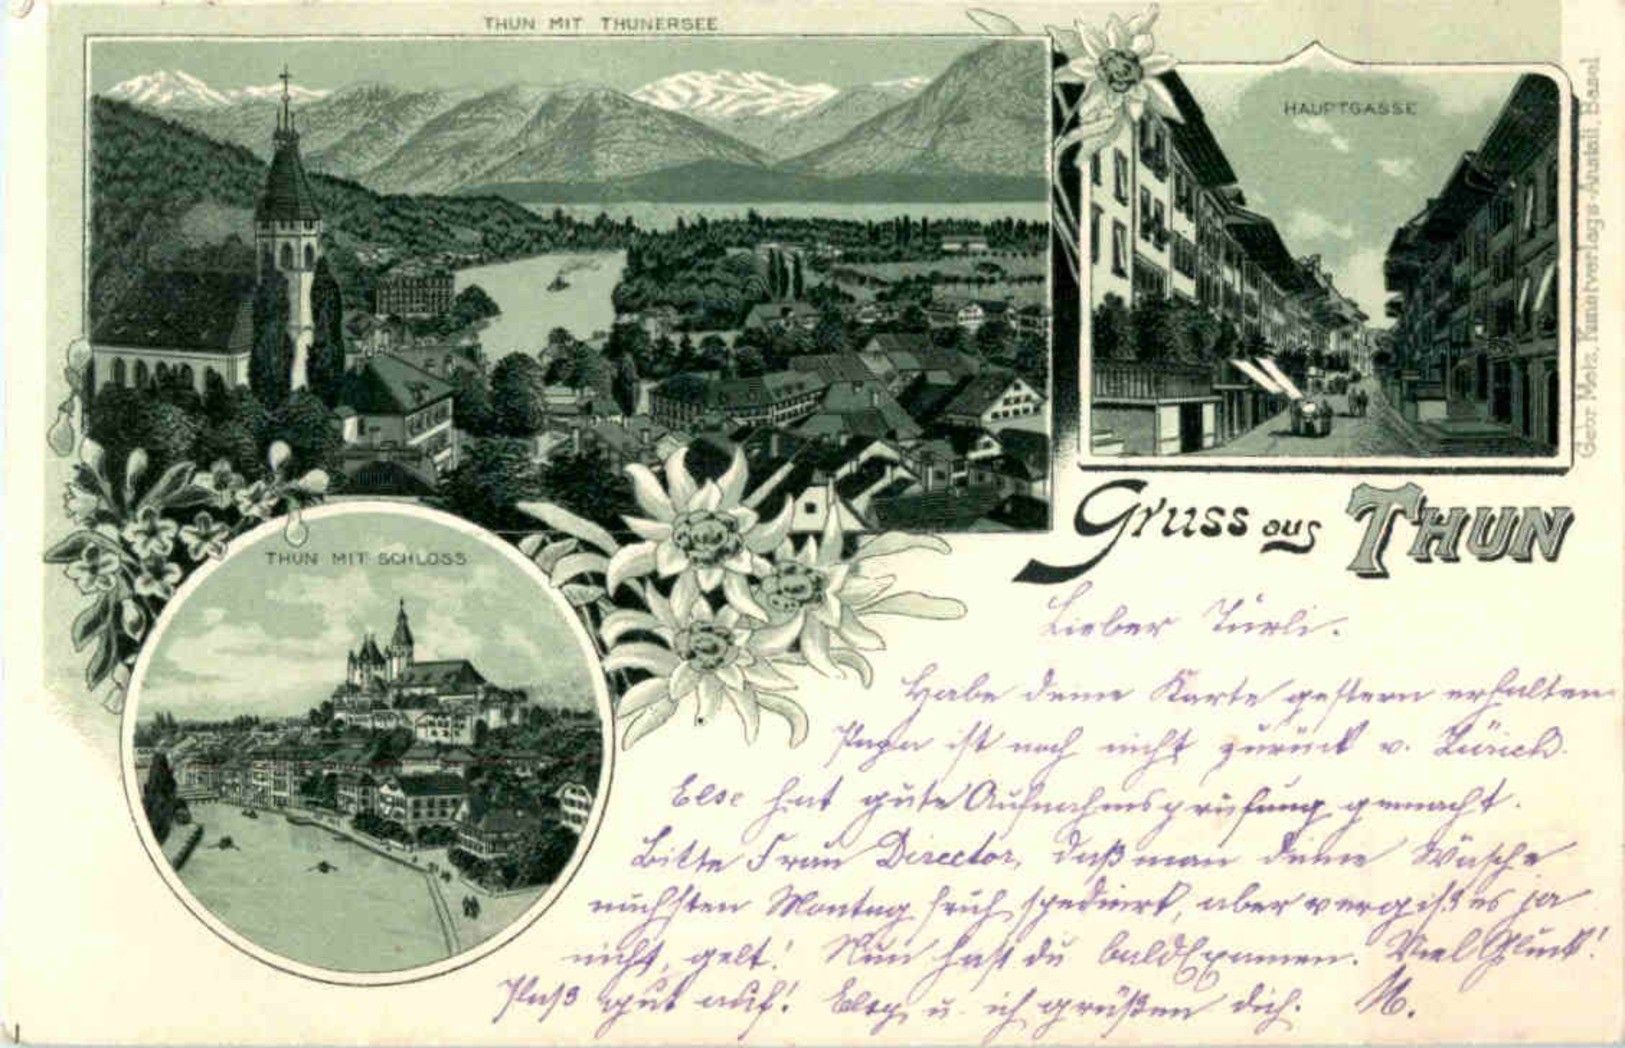 THUN MIT THUNERSEE
HAUPTGASSE
Gebr. Metz, Kunstverlags-Anstalt, Basel
THUN MIT SCHLOSS
Gruss aus THUN
Lieber Türli.
Habe deine Karte gestern erhalten
Papa ist noch nicht zurück v. Zürich.
Else hat gute Aufnahmsprüfung gemacht.
Bitte Frau Director, daß man deine Wäsche
nächsten Montag früh spediert, aber vergiß es ja
nicht, gelt! Nun hast du bald Examen. Viel Glück!
Paß gut auf! u. ich grüßen dich. M.